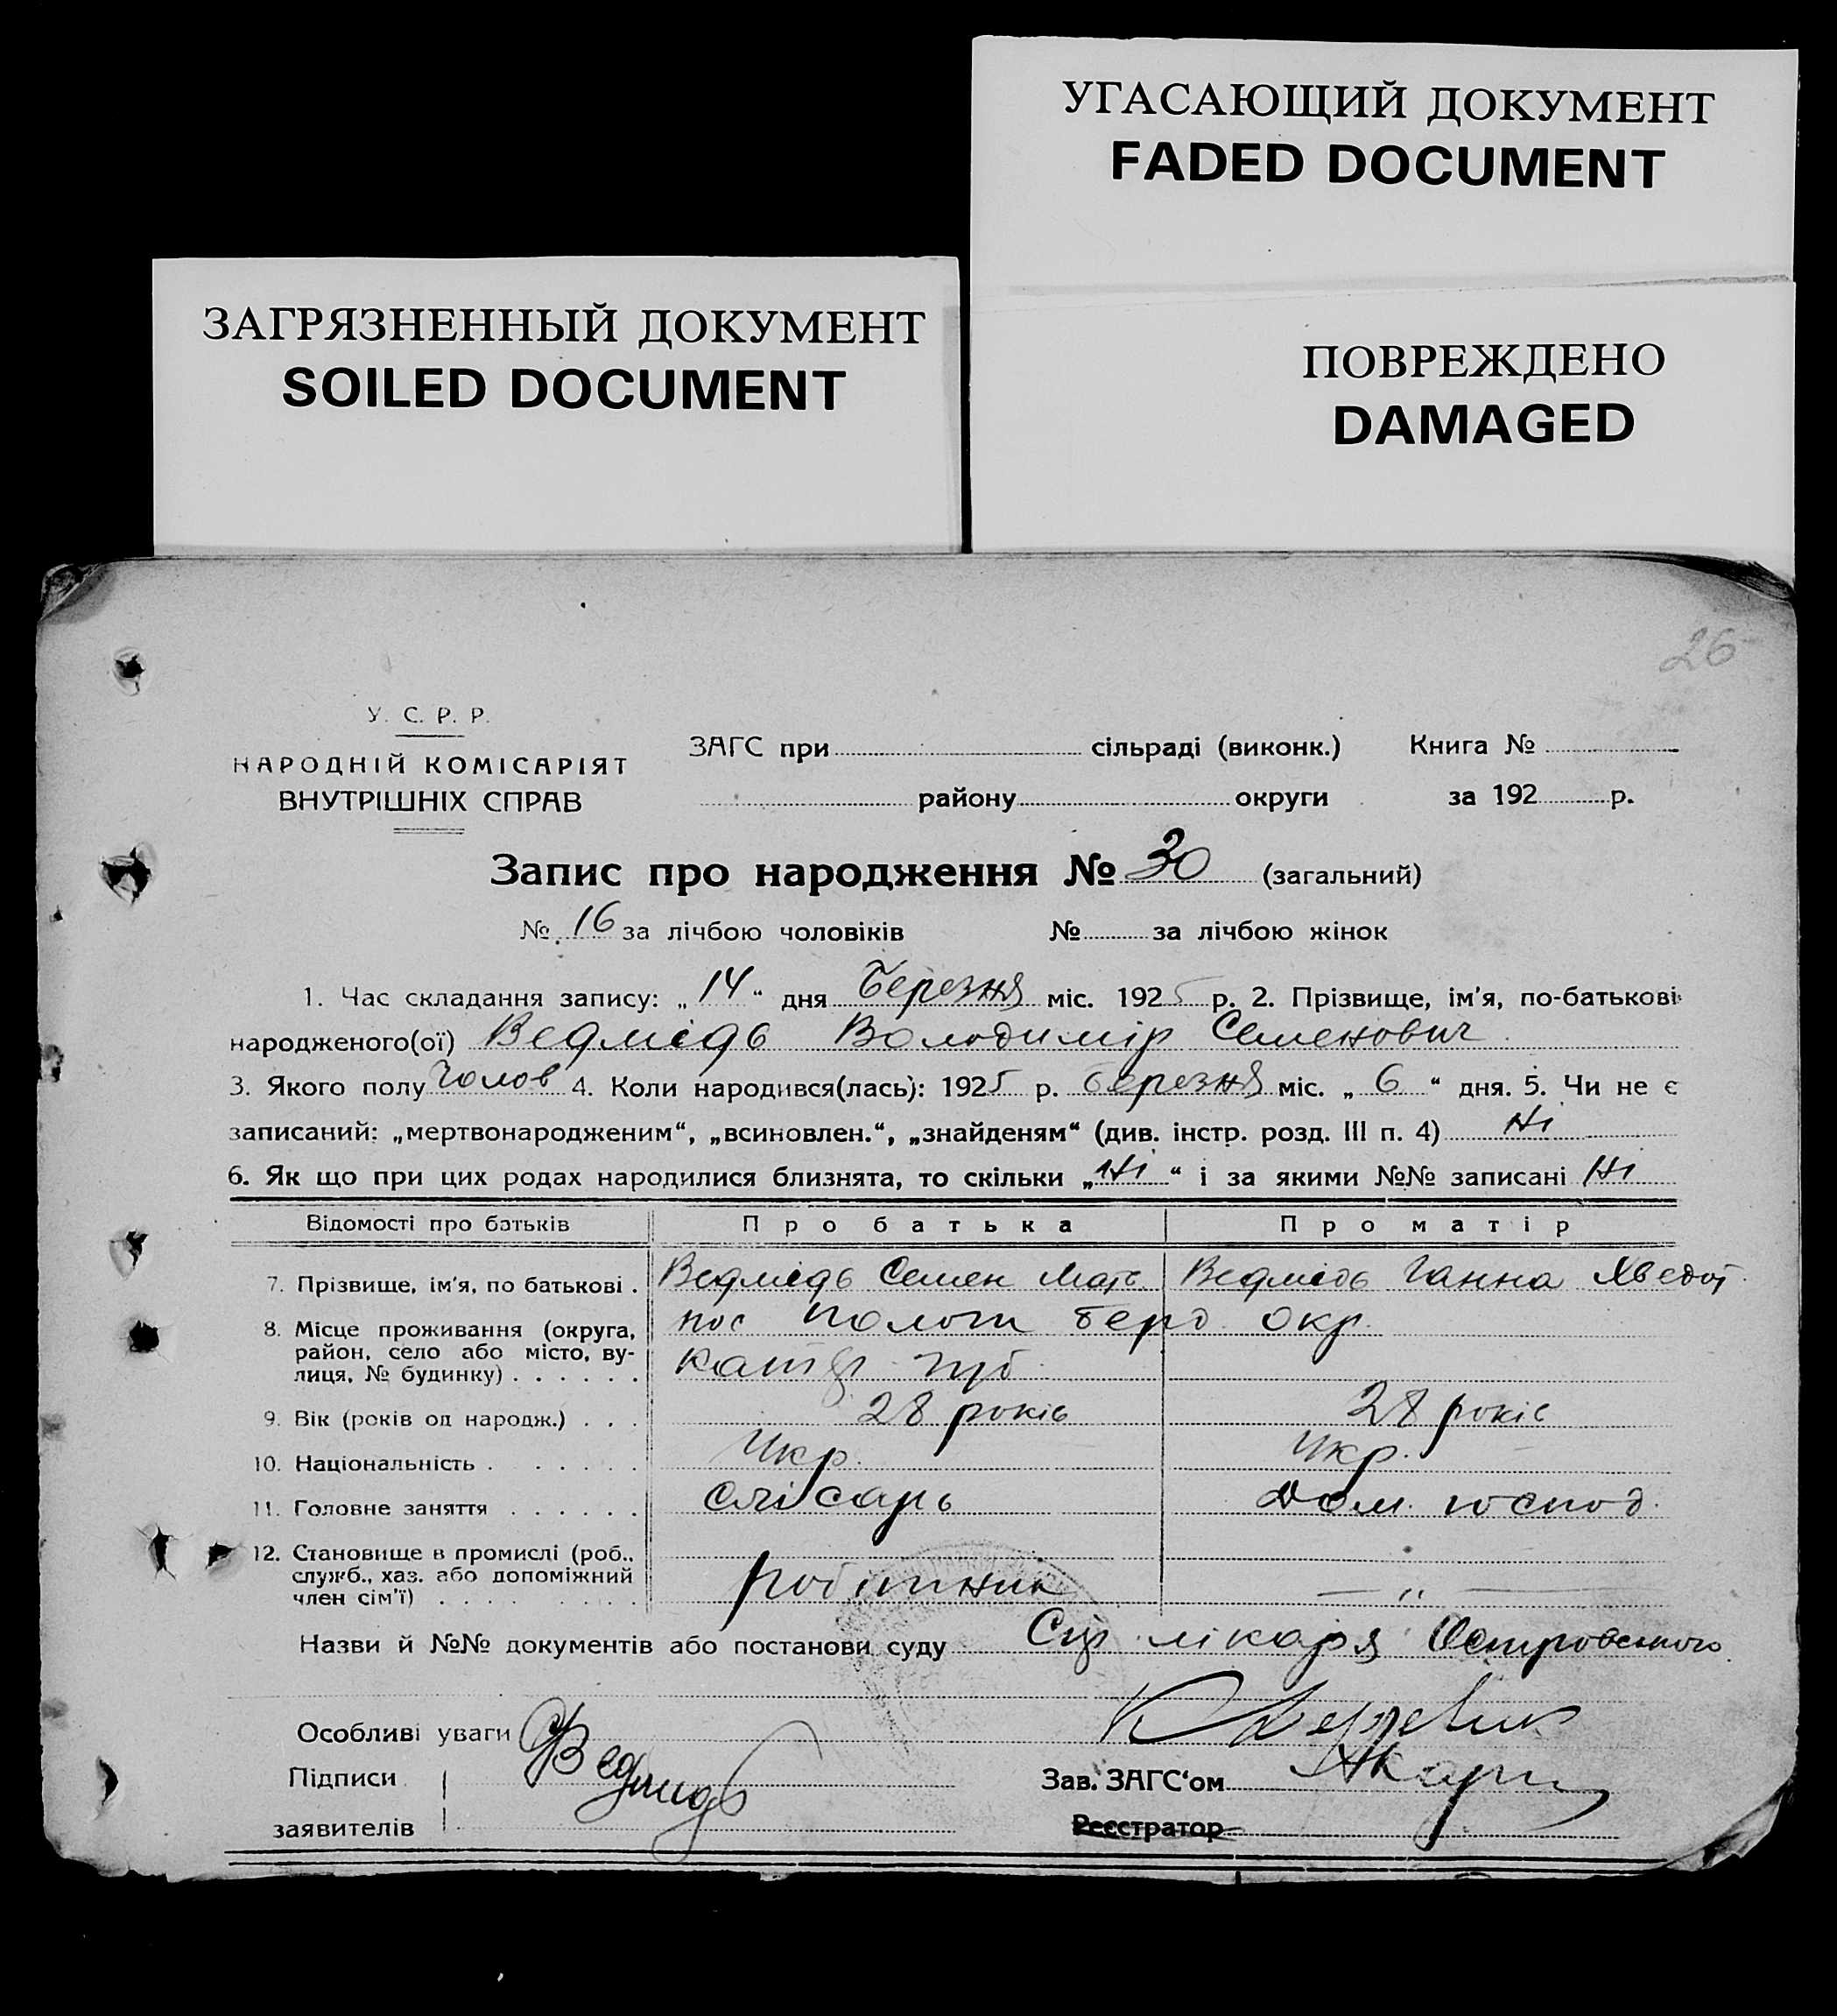 УГАСАЮЩИЙ ДОКУМЕНТ
FADED DOCUMENT
ЗАГРЯЗНЕННЫЙ ДОКУМЕНТ
SOILED DOCUMENT
ПОВРЕЖДЕНО
DAMAGED
26
У. С. Р. Р.
НАРОДНІЙ КОМІСАРІЯТ
ВНУТРІШНІХ СПРАВ
ЗАГС при сільраді (виконк.) Книга №
району округи за 192 р.
Запис про народження № 30 (загальний)
№ 16 за лічбою чоловіків № за лічбою жінок
1. Час складання запису: „14“ дня березня міс. 1925 р. 2. Прізвище, ім'я, по-батькові
народженого(ої) Ведмідь Володимір Семенович
3. Якого полу чолов 4. Коли народився(лась): 1925 р. березня міс. „6“ дня. 5. Чи не є
записаний: „мертвонародженим“, „всиновлен.“, „знайденям“ (див. інстр. розд. III п. 4) Ні
6. Як що при цих родах народилися близнята, то скільки „Ні“ і за якими №№ записані Ні
Відомості про батьків Про батька Про матір
7. Прізвище, ім'я, по батькові . Ведмідь Семен Ведмідь Ганна
8. Місце проживання (округа, район, село або місто, вулиця, № будинку) . . . . . . пос Пологи берд окр.
губ
9. Вік (років од народж.) . . . 28 років 28 років
10. Національність . . . . . . Укр. Укр.
11. Головне заняття . . . . . . слісарь Дом. господ.
12. Становище в промислі (роб., служб., хаз. або допоміжний член сім'ї) . . . . . . . . робітник — „ —
Назви й №№ документів або постанови суду лікаря Островського
Особливі уваги
Підписи Ведмидь Зав. ЗАГС'ом
заявителів Реєстратор